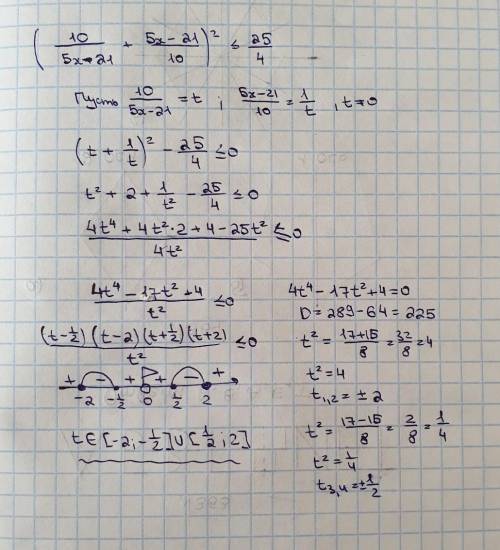 (10/(5x-21) + (5x-21)/10)² ≤ 25/4
Пусть 10/(5x-21) = t ; (5x-21)/10 = 1/t , t≠0
(t + 1/t)² - 25/4 ≤ 0
t² + 2 + 1/t² - 25/4 ≤ 0
(4t⁴ + 4t²·2 + 4 - 25t²)/4t² ≤ 0
(4t⁴ - 17t² + 4)/t² ≤ 0
(t-1/2)(t-2)(t+1/2)(t+2)/t² ≤ 0
+ - + + - +
-2 -1/2 0 1/2 2
t∈[-2;-1/2]∪[1/2;2]
4t⁴ - 17t² + 4 = 0
D = 289 - 64 = 225
t² = (17+15)/8 = 32/8 = 4
t² = 4
t₁,₂ = ± 2
t² = (17-15)/8 = 2/8 = 1/4
t² = 1/4
t₃,₄ = ±1/2